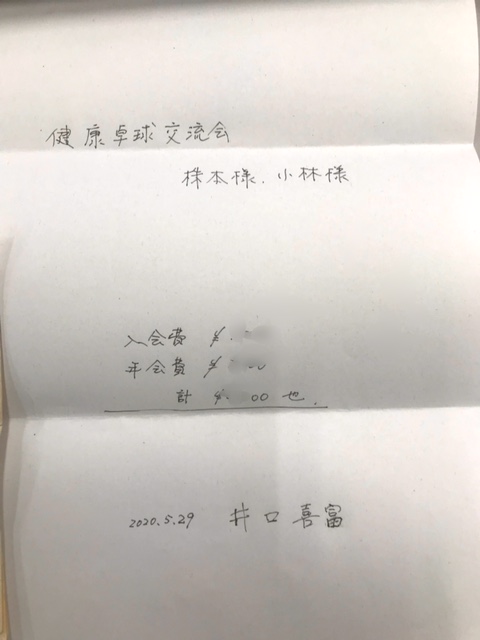 健康卓球交流会
株本様、小林様
入会費 ¥
年会費 ¥
計 ¥ 00 也.
2020.5.29 井口喜富